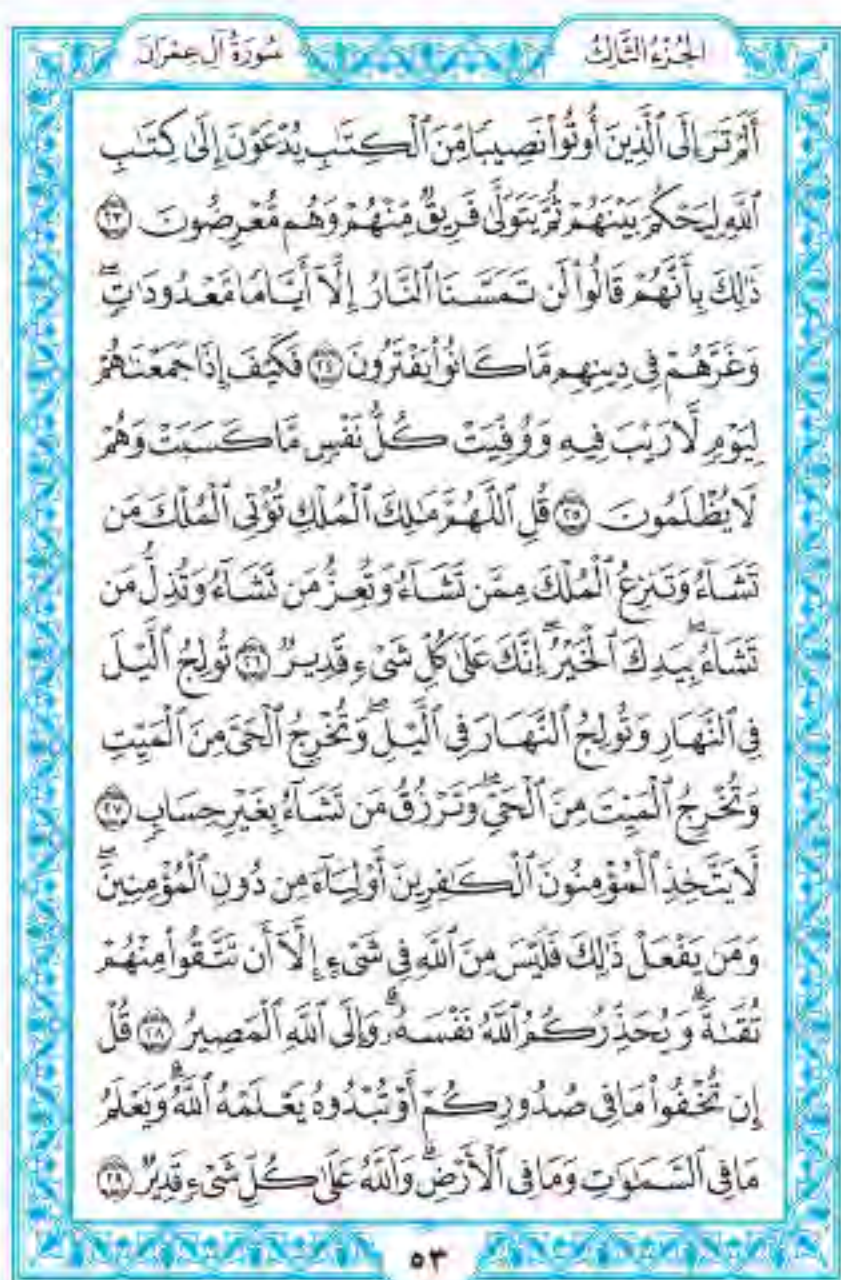 الجُزْءُ الثَّالِثُ
سُورَةُ آلِ عِمْرَانَ
أَلَمْ تَرَ إِلَى ٱلَّذِينَ أُوتُوا۟ نَصِيبًا مِّنَ ٱلْكِتَٰبِ يُدْعَوْنَ إِلَىٰ كِتَٰبِ
ٱللَّهِ لِيَحْكُمَ بَيْنَهُمْ ثُمَّ يَتَوَلَّىٰ فَرِيقٌ مِّنْهُمْ وَهُم مُّعْرِضُونَ ٢٣
ذَٰلِكَ بِأَنَّهُمْ قَالُوا۟ لَن تَمَسَّنَا ٱلنَّارُ إِلَّآ أَيَّامًا مَّعْدُودَٰتٍۖ
وَغَرَّهُمْ فِى دِينِهِم مَّا كَانُوا۟ يَفْتَرُونَ ٢٤ فَكَيْفَ إِذَا جَمَعْنَٰهُمْ
لِيَوْمٍ لَّا رَيْبَ فِيهِ وَوُفِّيَتْ كُلُّ نَفْسٍ مَّا كَسَبَتْ وَهُمْ
لَا يُظْلَمُونَ ٢٥ قُلِ ٱللَّهُمَّ مَٰلِكَ ٱلْمُلْكِ تُؤْتِى ٱلْمُلْكَ مَن
تَشَآءُ وَتَنزِعُ ٱلْمُلْكَ مِمَّن تَشَآءُ وَتُعِزُّ مَن تَشَآءُ وَتُذِلُّ مَن
تَشَآءُۖ بِيَدِكَ ٱلْخَيْرُۖ إِنَّكَ عَلَىٰ كُلِّ شَىْءٍ قَدِيرٌ ٢٦ تُولِجُ ٱلَّيْلَ
فِى ٱلنَّهَارِ وَتُولِجُ ٱلنَّهَارَ فِى ٱلَّيْلِۖ وَتُخْرِجُ ٱلْحَىَّ مِنَ ٱلْمَيِّتِ
وَتُخْرِجُ ٱلْمَيِّتَ مِنَ ٱلْحَىِّۖ وَتَرْزُقُ مَن تَشَآءُ بِغَيْرِ حِسَابٍ ٢٧
لَّا يَتَّخِذِ ٱلْمُؤْمِنُونَ ٱلْكَٰفِرِينَ أَوْلِيَآءَ مِن دُونِ ٱلْمُؤْمِنِينَۖ
وَمَن يَفْعَلْ ذَٰلِكَ فَلَيْسَ مِنَ ٱللَّهِ فِى شَىْءٍ إِلَّآ أَن تَتَّقُوا۟ مِنْهُمْ
تُقَىٰةًۗ وَيُحَذِّرُكُمُ ٱللَّهُ نَفْسَهُۥۗ وَإِلَى ٱللَّهِ ٱلْمَصِيرُ ٢٨ قُلْ
إِن تُخْفُوا۟ مَا فِى صُدُورِكُمْ أَوْ تُبْدُوهُ يَعْلَمْهُ ٱللَّهُۗ وَيَعْلَمُ
مَا فِى ٱلسَّمَٰوَٰتِ وَمَا فِى ٱلْأَرْضِۗ وَٱللَّهُ عَلَىٰ كُلِّ شَىْءٍ قَدِيرٌ ٢٩
٥٣